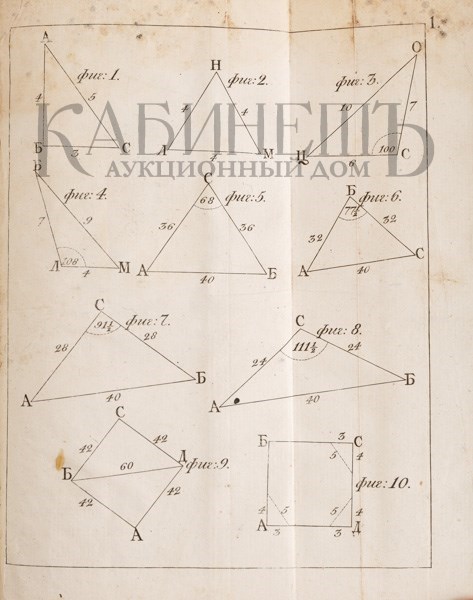 1.
А
фиг: 1.
4
5
Б
3
С
Н
фиг: 2.
4
4
Л
4
М
О
фиг: 3.
10
7
100
Ц
6
С
КАБИНЕТЪ
АУКЦИОННЫЙ ДОМ
Б
фиг: 4.
7
9
108
Л
4
М
С
фиг: 5.
68
36
36
А
40
Б
Б
фиг: 6.
77½
32
32
А
40
С
С
фиг: 7.
91½
28
28
А
40
Б
С
фиг: 8.
111½
24
24
А
40
Б
С
42
42
Б
60
Д
фиг: 9.
42
42
А
Б
3
С
5
4
фиг: 10.
4
5
5
4
А
3
3
Д